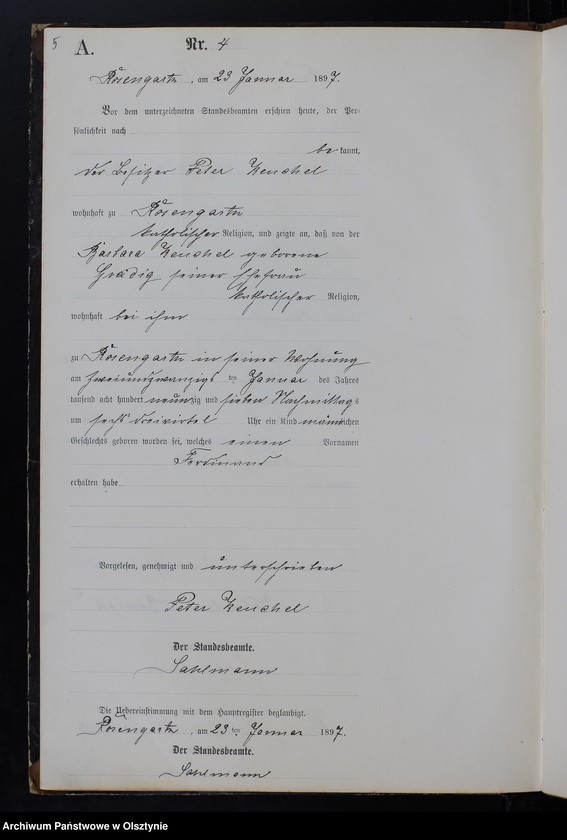 5
A.
Nr. 4
Rosengarth, am 23 Januar 1897.
Vor dem unterzeichneten Standesbeamten erschien heute, der Per-
sönlichkeit nach
be kannt,
der Besitzer Peter Zeuchel
wohnhaft zu Rosengarth
katholischer Religion, und zeigte an, daß von der
Barbara Zeuchel geborene
seiner Ehefrau
katholischer Religion,
wohnhaft bei ihm
zu Rosengarth in seiner Wohnung
am zweiundzwanzigs ten Januar des Jahres
tausend acht hundert neunzig und sieben Nachmittags
um sechs dreiviertel Uhr ein Kind männlichen
Geschlechts geboren worden sei, welches einen Vornamen
Ferdinand
erhalten habe
Vorgelesen, genehmigt und unterschrieben
Peter Zeuchel
Der Standesbeamte.
Sahlmann
Die Uebereinstimmung mit dem Hauptregister beglaubigt.
Rosengarth, am 23 ten Januar 1897.
Der Standesbeamte.
Sahlmann
Archiwum Państwowe w Olsztynie